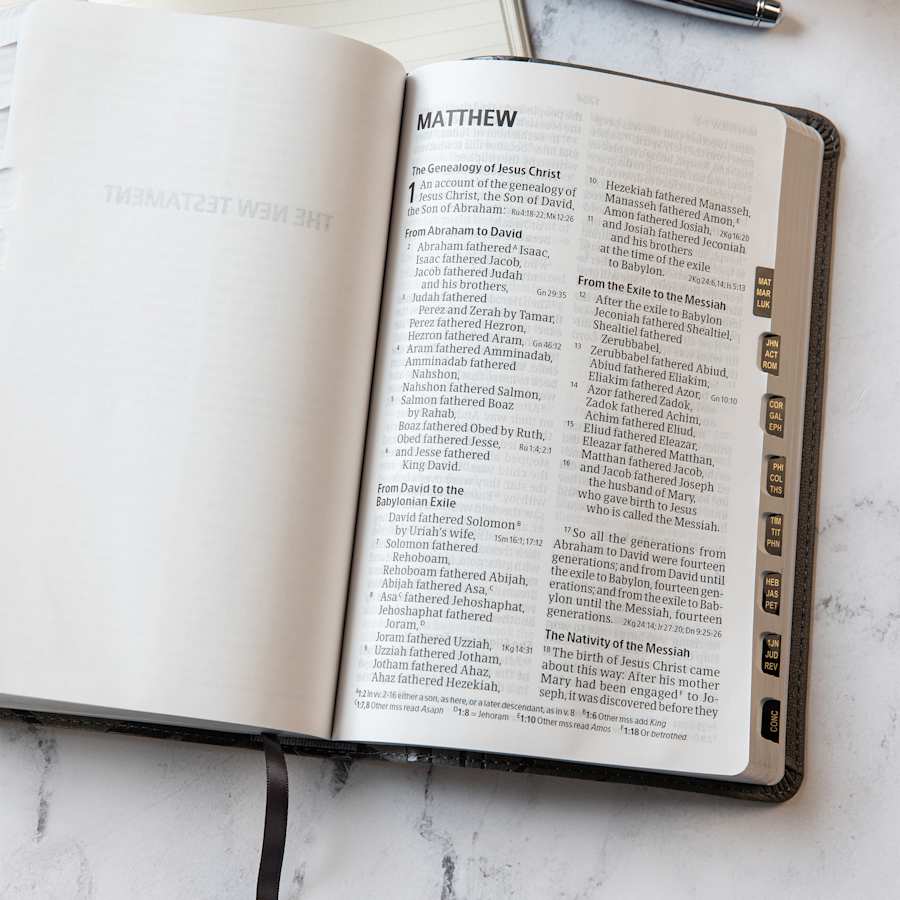 THE NEW TESTAMENT
MATTHEW
The Genealogy of Jesus Christ
1 An account of the genealogy of
Jesus Christ, the Son of David,
the Son of Abraham: Ru4:18-22; Mk 12:26
From Abraham to David
2 Abraham fathered A Isaac,
Isaac fathered Jacob,
Jacob fathered Judah
and his brothers, Gn 29:35
3 Judah fathered
Perez and Zerah by Tamar,
Perez fathered Hezron,
Hezron fathered Aram, Gn 46:12
4 Aram fathered Amminadab,
Amminadab fathered
Nahshon,
Nahshon fathered Salmon,
5 Salmon fathered Boaz
by Rahab,
Boaz fathered Obed by Ruth,
Obed fathered Jesse, Ru 1:4; 2:1
6 and Jesse fathered
King David.
From David to the
Babylonian Exile
David fathered Solomon B
by Uriah's wife, 1Sm 16:1; 17:12
7 Solomon fathered
Rehoboam,
Rehoboam fathered Abijah,
Abijah fathered Asa, C
8 Asa C fathered Jehoshaphat,
Jehoshaphat fathered
Joram, D
Joram fathered Uzziah, 1Kg 14:31
9 Uzziah fathered Jotham,
Jotham fathered Ahaz,
Ahaz fathered Hezekiah,
10 Hezekiah fathered Manasseh,
Manasseh fathered Amon, E
Amon fathered Josiah, 2Kg 16:20
11 and Josiah fathered Jeconiah
and his brothers
at the time of the exile
to Babylon. 2Kg 24:6,14; Is 5:13
From the Exile to the Messiah
12 After the exile to Babylon
Jeconiah fathered Shealtiel,
Shealtiel fathered
Zerubbabel,
13 Zerubbabel fathered Abiud,
Abiud fathered Eliakim,
Eliakim fathered Azor, Gn 10:10
14 Azor fathered Zadok,
Zadok fathered Achim,
Achim fathered Eliud,
15 Eliud fathered Eleazar,
Eleazar fathered Matthan,
Matthan fathered Jacob,
16 and Jacob fathered Joseph
the husband of Mary,
who gave birth to Jesus
who is called the Messiah.
17 So all the generations from
Abraham to David were fourteen
generations; and from David until
the exile to Babylon, fourteen gen-
erations; and from the exile to Bab-
ylon until the Messiah, fourteen
generations. 2Kg 24:14; Jr 27:20; Dn 9:25-26
The Nativity of the Messiah
18 The birth of Jesus Christ came
about this way: After his mother
Mary had been engaged F to Jo-
seph, it was discovered before they
A 1:2 In vv. 2-16 either a son, as here, or a later descendant, as in v. 8 B 1:6 Other mss add King
C 1:7,8 Other mss read Asaph D 1:8 = Jehoram E 1:10 Other mss read Amos F 1:18 Or betrothed
MAT
MAR
LUK
JHN
ACT
ROM
COR
GAL
EPH
PHI
COL
THS
TIM
TIT
PHN
HEB
JAS
PET
1JN
JUD
REV
CONC